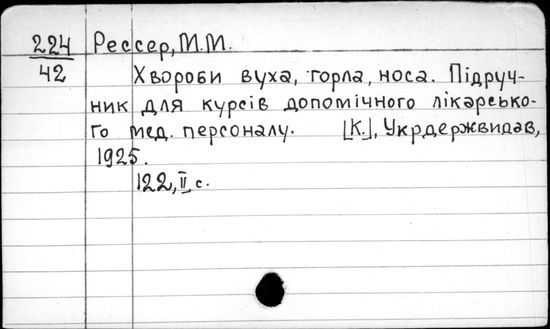 224 Рессер, М.М.
42 Хвороби вуха, горла, носа. Підруч-
ник для курсів допомічного лікарсько-
го мед. персоналу. [К.], Укрдержвидав,
1925.
122, II с.